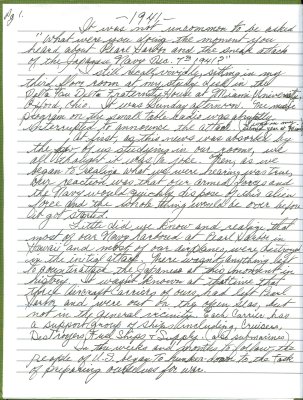 Pg 1.
-1941-
It was not uncommon to be asked
"What were you doing the moment you
heard about Pearl Harbor and the sneak attack
of the Japanese Navy Dec. 7th 1941?"
I still recall vividly, sitting in my
third floor room at my study desk in the
Delta Tau Delta Fraternity house at Miami University
Oxford, Ohio. It was Sunday afternoon. The music
program on the small table radio was abruptly
interrupted to announce the attack.
At first, as this news was absorbed by
the of us studying in our rooms, we
all thought it was a joke. Then, as we
began to realize what we were hearing was true,
our reaction was that our armed forces and
the Navy would quickly dispose of this alien
force and the whole thing would be over before
it got started.
Little did we know and realize that
most of our Navy harbored at Pearl Harbor in
Hawaii and most of our airplanes were destroyed
in the initial attack. There wasn't anything left
to counterattack the Japanese at this moment in
history. It wasn't known at that time that
three Aircraft Carriers of ours had left Pearl
Harbor and were out on the open sea, but
not in the general vicinity. Each Carrier has
a support group of ships including, Cruisers,
Destroyers, Fuel Ships & Supply (and submarines).
In the weeks and months to follow, the
people of U.S. began to bunker-down to the task
of preparing ourselves for war.